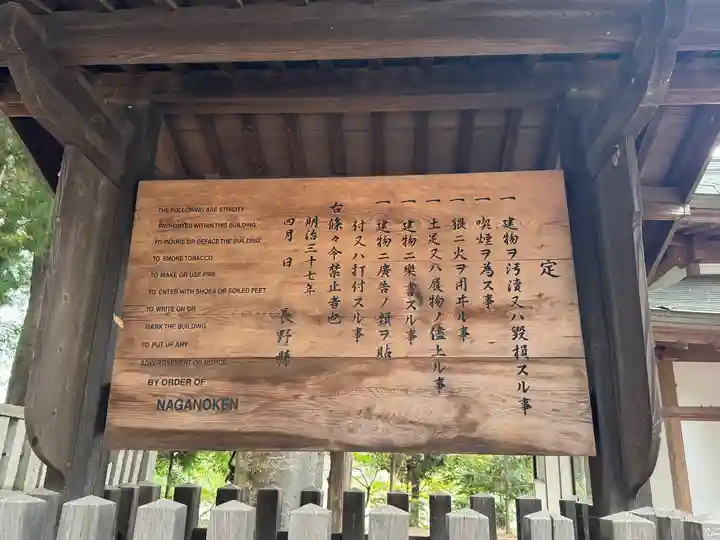 定
一 建物ヲ汚瀆又ハ毀損スル事
一 喫煙ヲ為ス事
一 猥ニ火ヲ用ヰル事
一 土足又ハ履物ノ儘上ル事
一 建物ニ樂書スル事
一 建物ニ廣告ノ類ヲ貼
付又ハ打付スル事
右條々今禁止者也
明治三十七年
四月 日 長野縣
THE FOLLOWING ARE STRICITY
PROHIBITED WITHIN THIS BUILDING
TO INOURE OR DEFACE THE BUILDING
TO SMOKE TOBACCO.
TO MAKE OR USE FIRE
TO ENTER WITH SHOES OR SOILED FEET.
TO WRITE ON OR
MARK THE BUILDING.
TO PUT UP ANY
ADVERTISEMENT OR NOTICE.
BY ORDER OF
NAGANOKEN